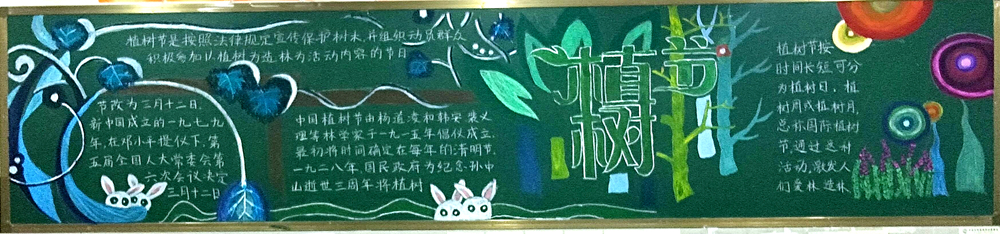 植树节是按照法律规定宣传保护树木,并组织动员群众
积极参加以植树为造林为活动内容的节日
植树节
中国植树节由杨道凌和韩安、裴义
理等林学家于一九一五年倡仪成立,
最初将时间确定在每年的清明节,
一九二八年,国民政府为纪念孙中
山逝世三周年将植树
节改为三月十二日,
新中国成立的一九七九
年,在邓小平提仪下,第
五届全国人大常委会第
六次会议决定
三月十二日
植树节按
时间长短可分
为植树日,植
树周或植树月,
总称国际植树
节,通过这种
活动,激发人
们爱林造林